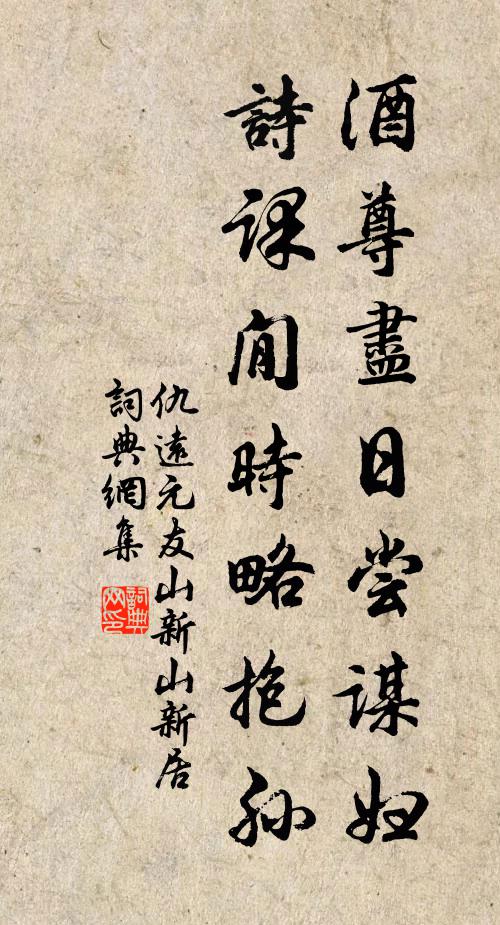 酒尊盡日尝謀妇
詩課閒時略抱孙
仇遠元友山新山新居
詞典網集
詞典网印